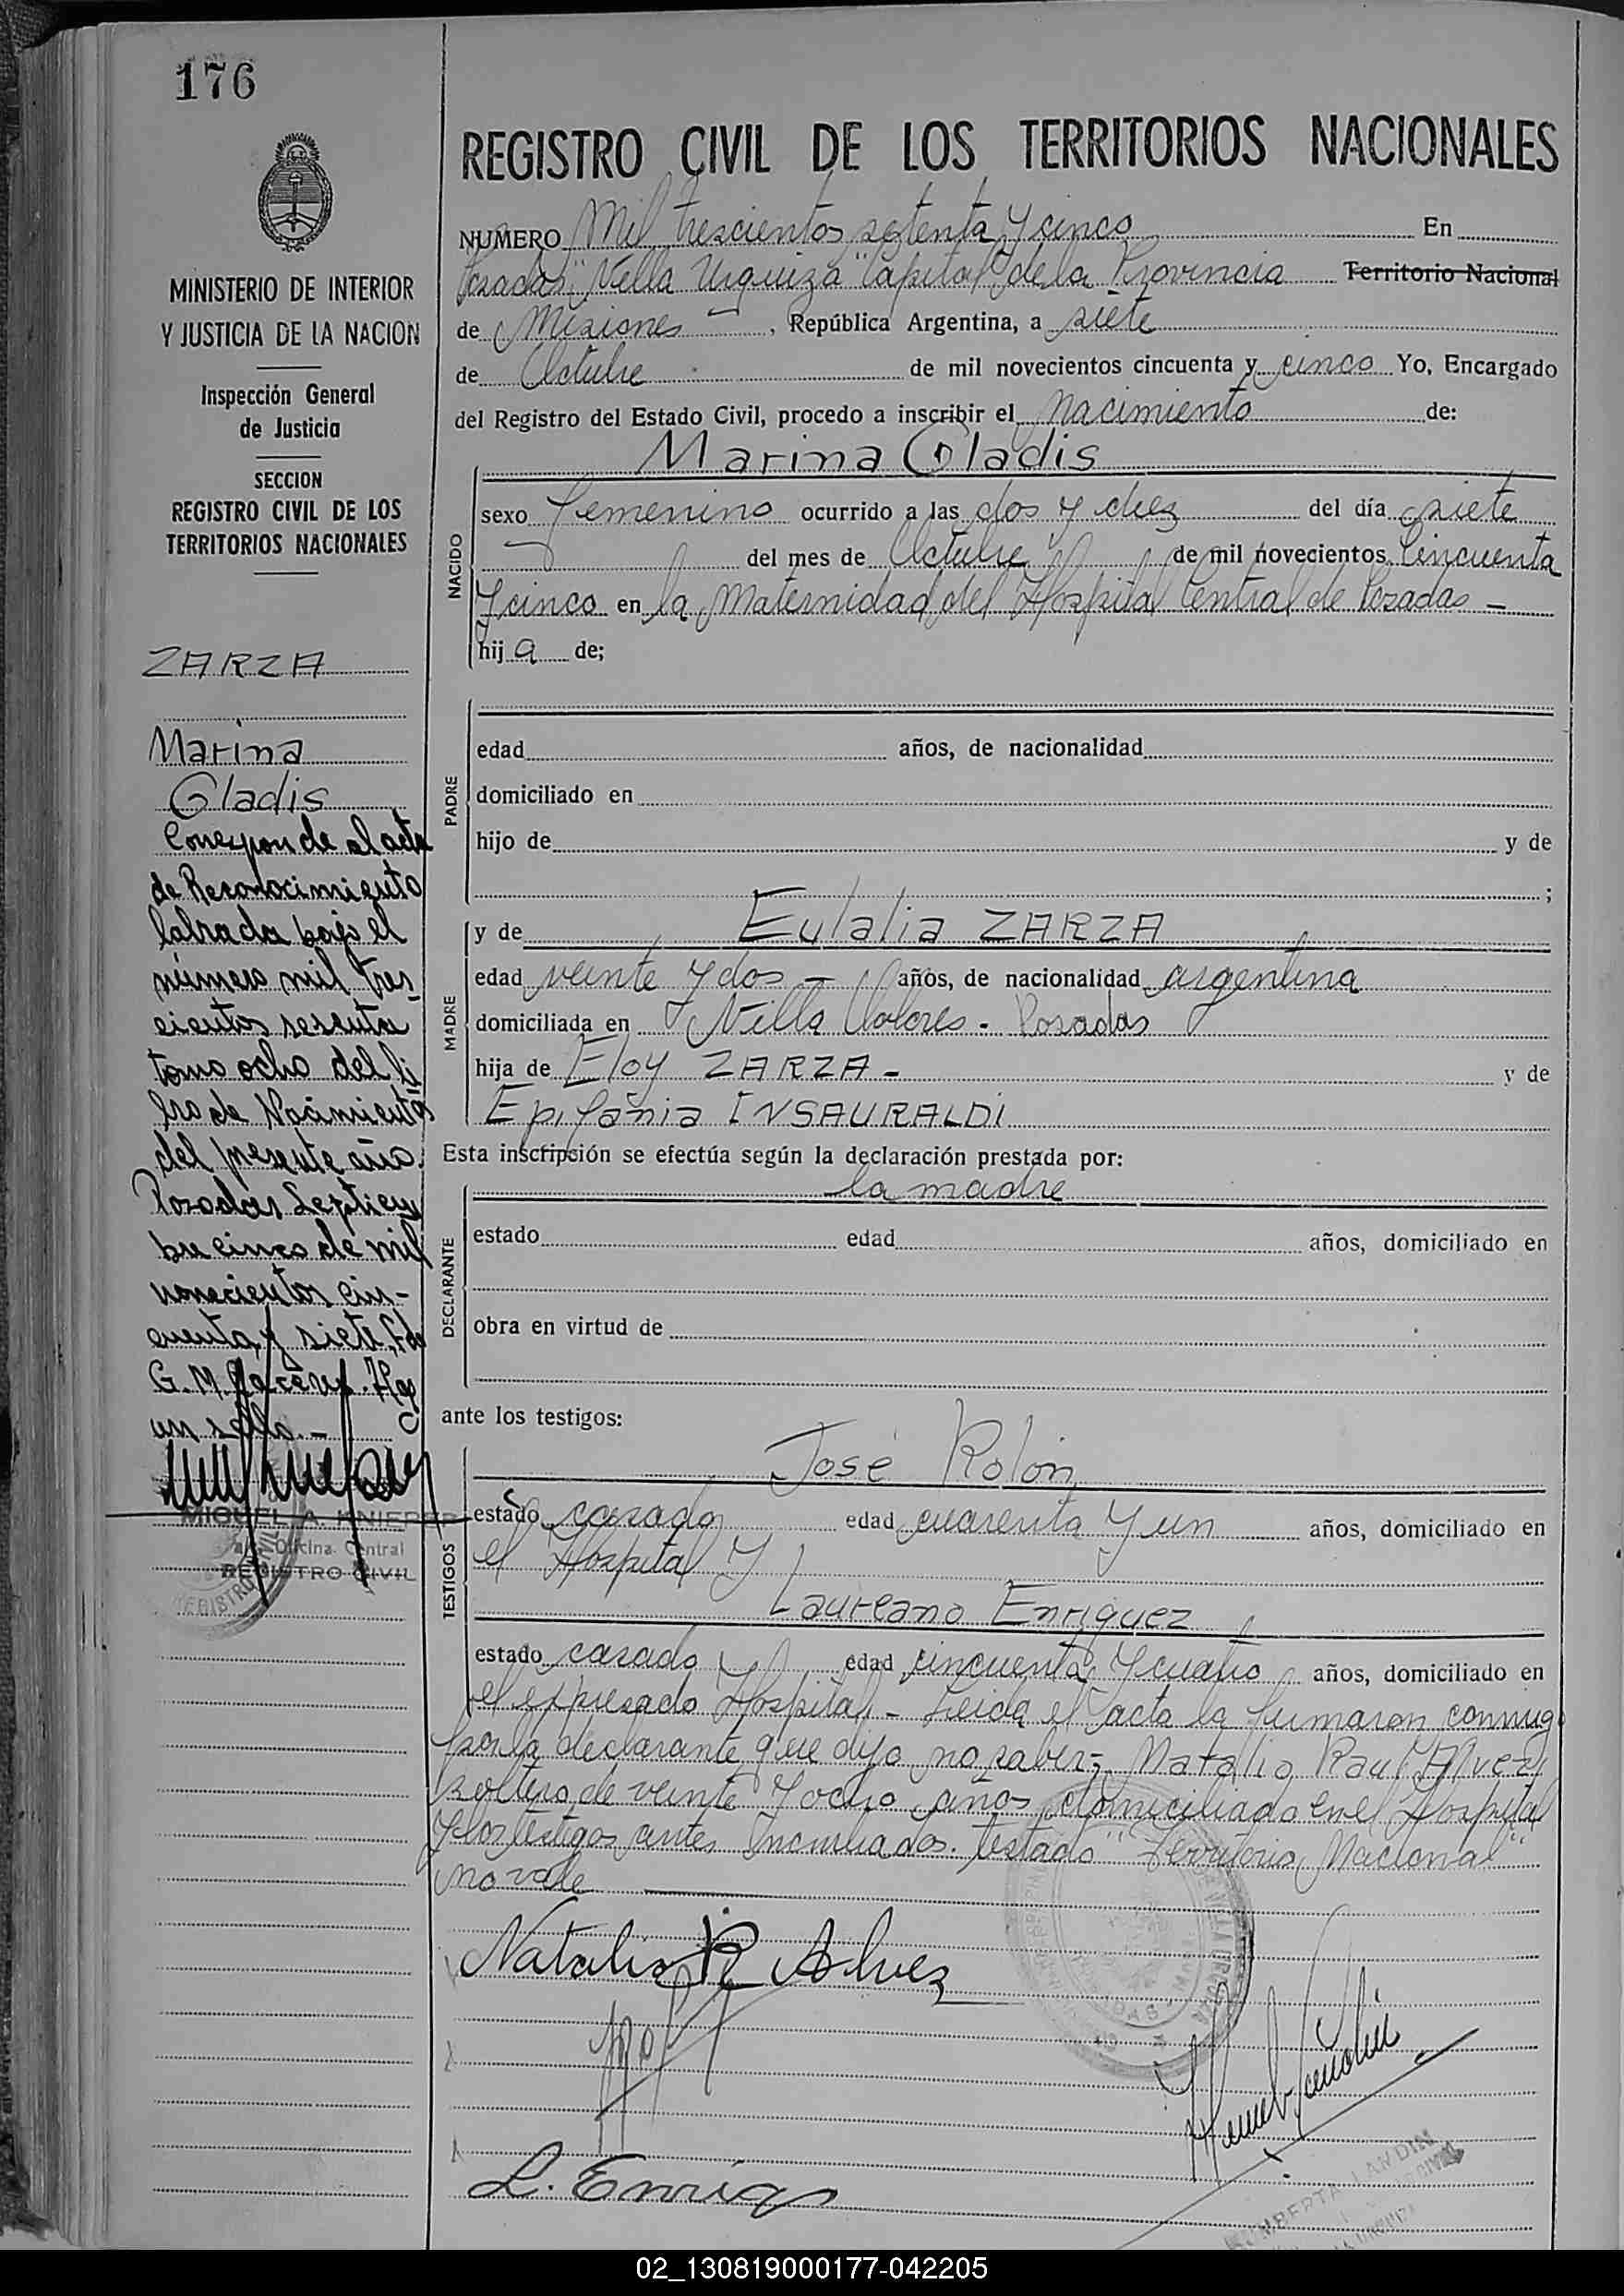 176
MINISTERIO DE INTERIOR
Y JUSTICIA DE LA NACION
Inspección General
de Justicia
SECCION
REGISTRO CIVIL DE LOS
TERRITORIOS NACIONALES
ZARZA
Marina
Gladis
Corresponde al acta
de Reconocimiento
labrada bajo el
número mil tres
cientos sesenta
tomo ocho del li
bro de Nacimientos
del presente año.
Posadas Septiem
bre cinco de mil
novecientos cin-
cuenta y siete. Fdo
G. M.
un sello.-
MIGUEL A. KNIEPER
Oficina Central
REGISTRO CIVIL
REGISTRO CIVIL DE LOS TERRITORIOS NACIONALES
NUMERO Mil trescientos setenta y cinco En
Posadas "Villa Urquiza" Capital de la Provincia Territorio Nacional
de Misiones, República Argentina, a siete
de Octubre de mil novecientos cincuenta y cinco Yo, Encargado
del Registro del Estado Civil, procedo a inscribir el Nacimiento de:
Marina Gladis
NACIDO
sexo femenino ocurrido a las dos y diez del día siete
del mes de Octubre de mil novecientos Cincuenta
y cinco en la Maternidad del Hospital Central de Posadas -
hij a de;
PADRE
edad años, de nacionalidad
domiciliado en
hijo de y de
;
MADRE
y de Eulalia ZARZA
edad veinte y dos - años, de nacionalidad argentina
domiciliada en Villa Dolores - Posadas
hija de Eloy ZARZA - y de
Epifania INSAURALDI
Esta inscripción se efectúa según la declaración prestada por:
DECLARANTE
la madre
estado edad años, domiciliado en
obra en virtud de
ante los testigos:
TESTIGOS
José Rolón
estado casado edad cuarenta y un años, domiciliado en
el Hospital y
Laureano Enriquez
estado casado edad cincuenta y cuatro años, domiciliado en
el expresado Hospital - Leida el acta la firmaron conmigo
por la declarante que dijo no saber; Natalio Raul Alvez
soltero de veinte y ocho años domiciliado en el Hospital
y los testigos antes nombrados. Testado "Territorio Nacional"
no vale
Natalio R Alvez
L. Enriq
LANDIN
02_130819000177-042205